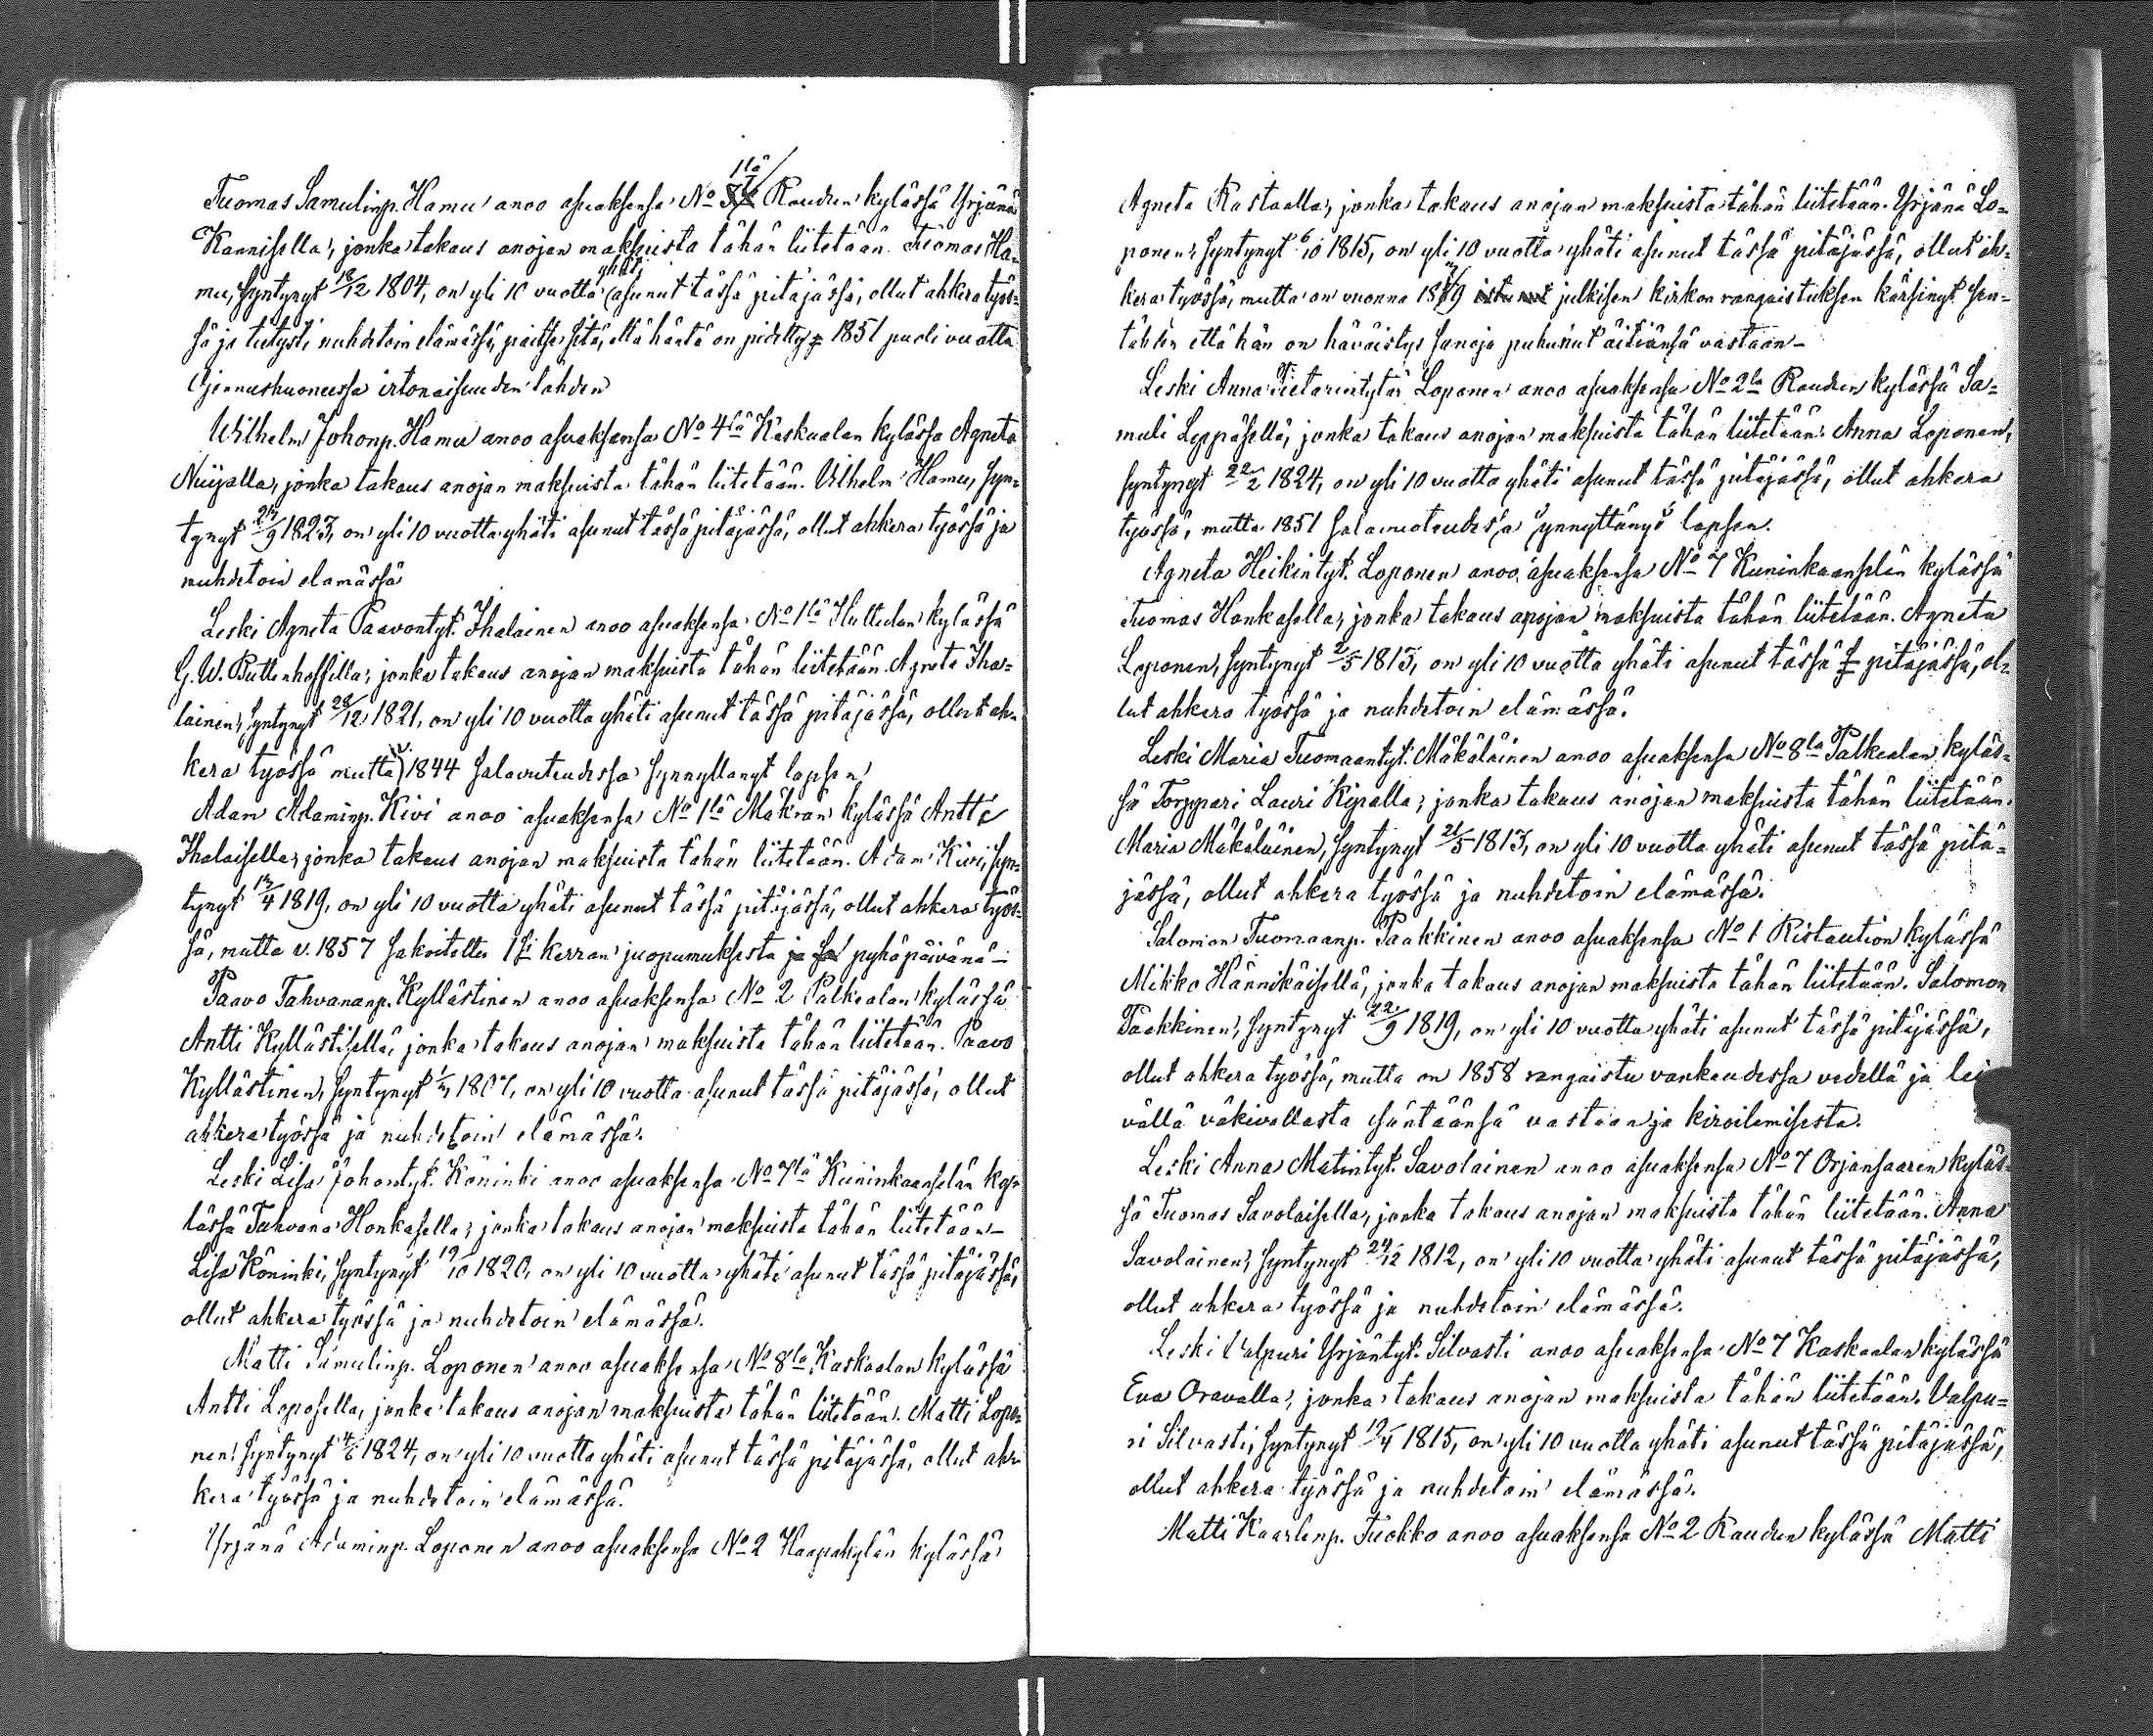 Tuomas Samulinp. Hamu anoo asuaksensa No 1lä Raudun kylässä Yrjänä
Kannisella, jonka takaus anojan maksuista tähän liitetään. Tuomas Ha-
mu, syntynyt 18/12 1804, on yli 10 vuotta yhäti asunut tässä pitäjässä, ollut ahkera työs-
sä ja tietysti nuhdetoin elämässä, paitse sitä, että häntä on pidetty 1851 puoli vuotta
Ojennushuoneessa irtonaisuuden tähden
Wilhelm Johonp. Hamu anoo asuaksensa No 4lä Kaskaalan kylässä Agneta
Nuijalla, jonka takaus anojan maksuista tähän liitetään. Vilhelm Hamu, syn-
tynyt 23/9 1823, on yli 10 vuotta yhäti asunut tässä pitäjässä, ollut ahkera työssä ja
nuhdetoin elämässä
Leski Agneta Paavontyt. Ihalainen anoo asuaksensa No 1lä Huttulan kylässä
G. W. Buttenhoffilla, jonka takaus anojan maksuista tähän liitetään. Agneta Iha-
lainen, syntynyt 28/12 1821, on yli 10 vuotta yhäti asunut tässä pitäjässä, ollut ah-
kera työssä mutta v. 1844 salavuteudessa synnyttänyt lapsen
Adam Adaminp. Kivi anoo asuaksensa No 1lä Mäkrän kylässä Antti
Ihalaisella, jonka takaus anojan maksuista tähän liitetään. Adam Kivi, syn-
tynyt 13/4 1819, on yli 10 vuotta yhäti asunut tässä pitäjässä, ollut ahkera työs-
sä, mutta v. 1857 sakoitettu 1si kerran juopumuksesta ja sa pyhäpäivänä –
Paavo Tahvananp. Kyllästinen anoo asuaksensa No 2 Palkealan kylässä
Antti Kyllästisellä, jonka takaus anojan maksuista tähän liitetään. Paavo
Kyllästinen, syntynyt 1807, on yli 10 vuotta asunut tässä pitäjässä, ollut
ahkera työssä ja nuhdetoin elämässä.
Leski Lisa Johontyt. Köninki anoo asuaksensa No 7lä Kuninkaanselän ky-
lässä Tahvana Honkasella, jonka takaus anojan maksuista tähän liitetään –
Lisa Köninki, syntynyt 19/10 1820, on yli 10 vuotta yhäti asunut tässä pitäjässä,
ollut ahkera työssä ja nuhdetoin elämässä.
Matti Samulinp. Loponen anoo asuaksensa No 8la Kaskaalan kylässä
Antti Loposella, jonka takaus anojan maksuista tähän liitetään. Matti Lopo-
nen, syntynyt 4/6 1824, on yli 10 vuotta yhäti asunut tässä pitäjässä, ollut ah-
kera työssä ja nuhdetoin elämässä.
Yrjänä Adaminp. Loponen anoo asuaksensa No 2 Haapakylän kylässä
Agneta Rastaalla, jonka takaus anojan maksuista tähän liitetään. Yrjänä Lo-
ponen, syntynyt 6/10 1815, on yli 10 vuotta yhäti asunut tässä pitäjässä, ollut ah-
kera työssä, mutta on vuonna istunut julkisen kirkon rangaistuksen kärsinyt sen-
tähden että hän on häväistys sanoja puhunut äitiänsä vastaan –
Leski Anna Pietarintytär Loponen anoo asuaksensa No 2la Raudun kylässä Sa-
muli Leppäsellä, jonka takaus anojan maksuista tähän liitetään. Anna Loponen,
syntynyt 22/2 1824, on yli 10 vuotta yhäti asunut tässä pitäjässä, ollut ahkera
työssä, mutta 1851 salavuoteudessa synnyttänyt lapsen.
Agneta Heikintyt. Loponen anoo asuaksensa No 7 Kuninkaanselän kylässä
Tuomas Honkasella, jonka takaus anojan maksuista tähän liitetään. Agneta
Loponen, syntynyt 2/5 1813, on yli 10 vuotta yhäti asunut tässä pitäjässä, ol-
lut ahkera työssä ja nuhdetoin elämässä.
Leski Maria Tuomaantyt. Mäkäläinen anoo asuaksensa No 8la Palkealan kyläs-
sä Torppari Lauri Kipalla, jonka takaus anojan maksuista tähän liitetään.
Maria Mäkäläinen, syntynyt 21/5 1813, on yli 10 vuotta yhäti asunut tässä pitä-
jässä, ollut ahkera työssä ja nuhdetoin elämässä.
Salomon Tuomaanp. Paakkinen anoo asuaksensa No 1 Ristaution kylässä
Mikko Hännikäisellä, jonka takaus anojan maksuista tähän liitetään. Salomon
Paakkinen, syntynyt 22/9 1819, on yli 10 vuotta yhäti asunut tässä pitäjässä,
ollut ahkera työssä, mutta on 1858 rangaistu vankeudessa vedellä ja lei
vällä väkivallasta isäntäänsä vastaan ja kiroilemisesta.
Leski Anna Matintyt. Savolainen anoo asuaksensa No 7 Orjansaaren kyläs-
sä Tuomas Savolaisella, jonka takaus anojan maksuista tähän liitetään. Anna
Savolainen, syntynyt 24/12 1812, on yli 10 vuotta yhäti asunut tässä pitäjässä,
ollut ahkera työssä ja nuhdetoin elämässä.
Leski Valpuri Yrjäntyt. Silvasti anoo asuaksensa No 7 Kaskaalan kylässä
Eva Oravalla, jonka takaus anojan maksuista tähän liitetään. Valpu-
ri Silvasti, syntynyt 19/4 1815, on yli 10 vuotta yhäti asunut tässä pitäjässä,
ollut ahkera työssä ja nuhdetoin elämässä.
Matti Kaarlenp. Tuokko anoo asuaksensa No 2 Raudun kylässä Matti